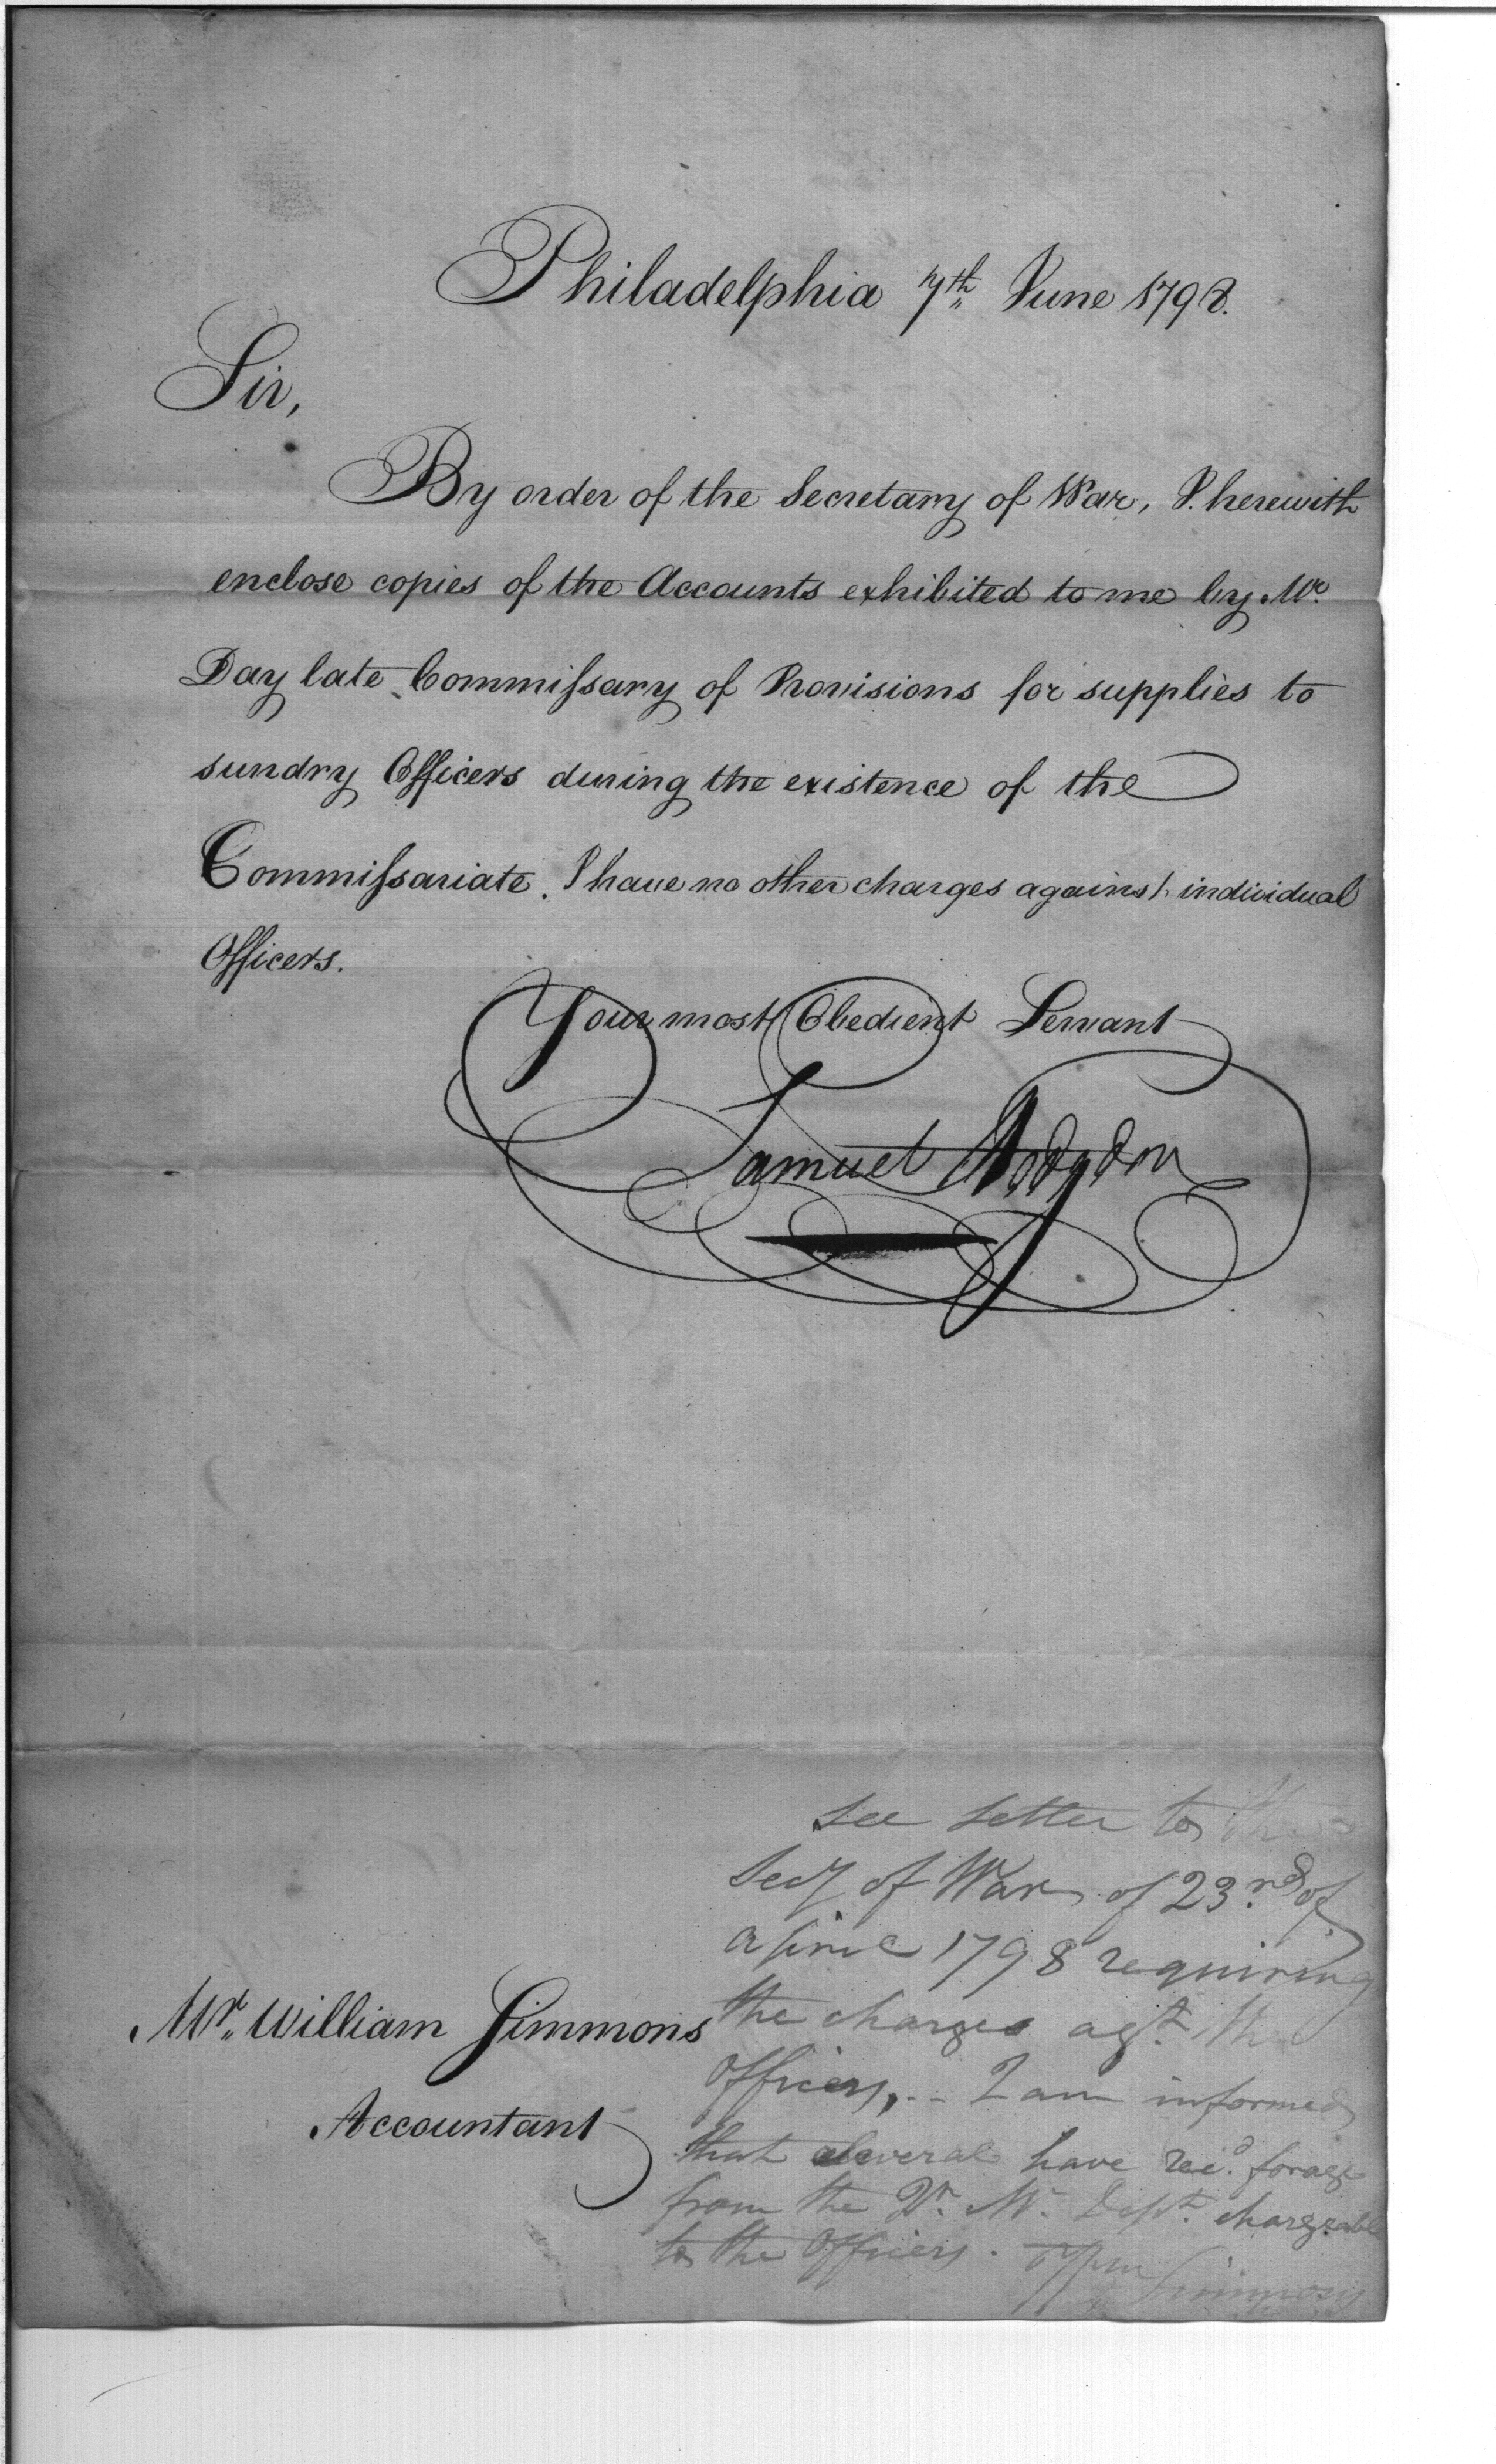 Philadelphia 7th June 1798.
Sir,
By order of the Secretary of War, I herewith
enclose copies of the Accounts exhibited to me by Mr.
Day late Commiſsary of Provisions for supplies to
sundry Officers during the existence of the
Commiſsariate. I have no other charges against individual
Officers.
Your most Obedient Servant
Samuel Hodgdon
Mr. William Simmons
Accountant
see letter to the
Secy of War of 23rd of
April 1798 requiring
the charges agt. the
Officers, .. I am informed
that several have recd. forage
from the Qr. Mr. Dept. chargeable
to the Officers. Wm
Simmons